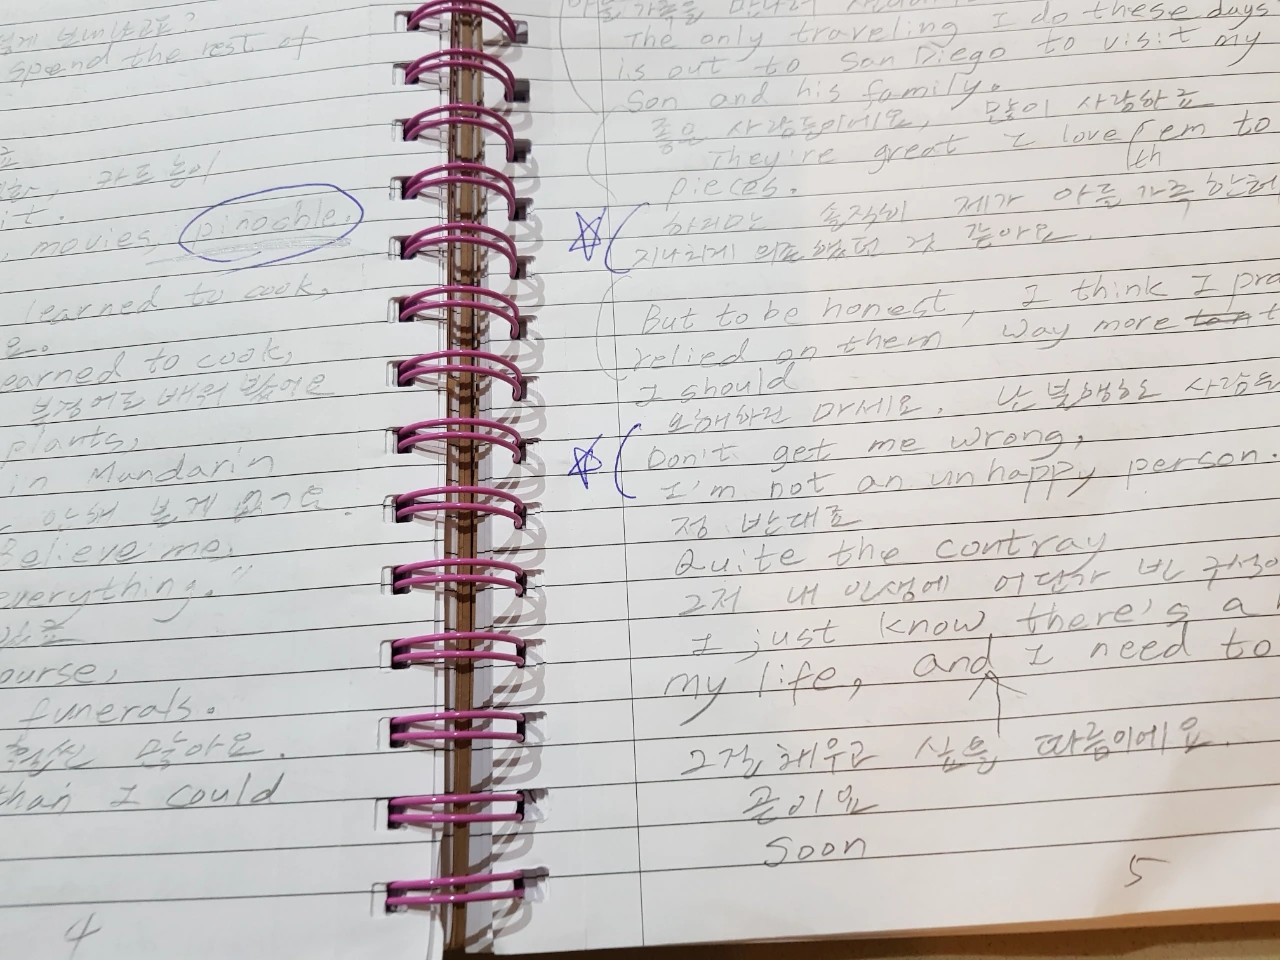 spend the rest of
it.
movies, pinochle.
learned to cook,
요.
earned to cook,
배워 봤어요
plants,
in Mandarin
안해 본게 없거든.
Believe me,
everything."
ourse,
funerals.
훨씬 많아요.
than I could
4
The only traveling I do these days
is out to San Diego to visit my
Son and his family.
좋은 사람들이에요, 많이 사랑하죠
They're great I love em to
th
pieces.
하지만 솔직히 제가 아들 가족 한테
지나치게 의존했던 것 같아요.
But to be honest, I think I pro
relied on them way more tan t
I should
오해하진 마세요. 난 불행한 사람은
Don't get me wrong,
I'm not an unhappy person.
정 반대죠
Quite the contray
그저 내 인생에 어딘가 빈 구석이
I just know there's a
my life, and I need to
그걸 채우고 싶을 따름이에요.
곧이요
Soon
5